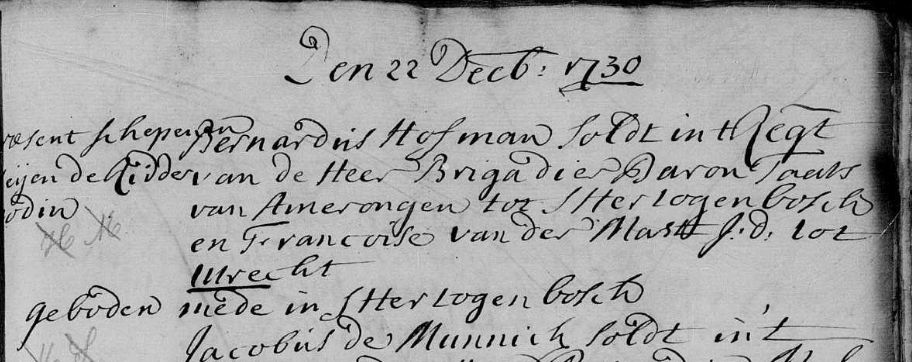 Den 22 Decb: 1730
esent schepenen Bernardus Hofman soldt int Regt
eijen de Ridder van de Heer Brigadier Baron Taats
odin van Amerongen tot S Hertogenbosch
en Francoise van der Mast J:d: tot
Utrecht
geboden mede in S Hertogenbosch
Jacobus de Munnich soldt in't